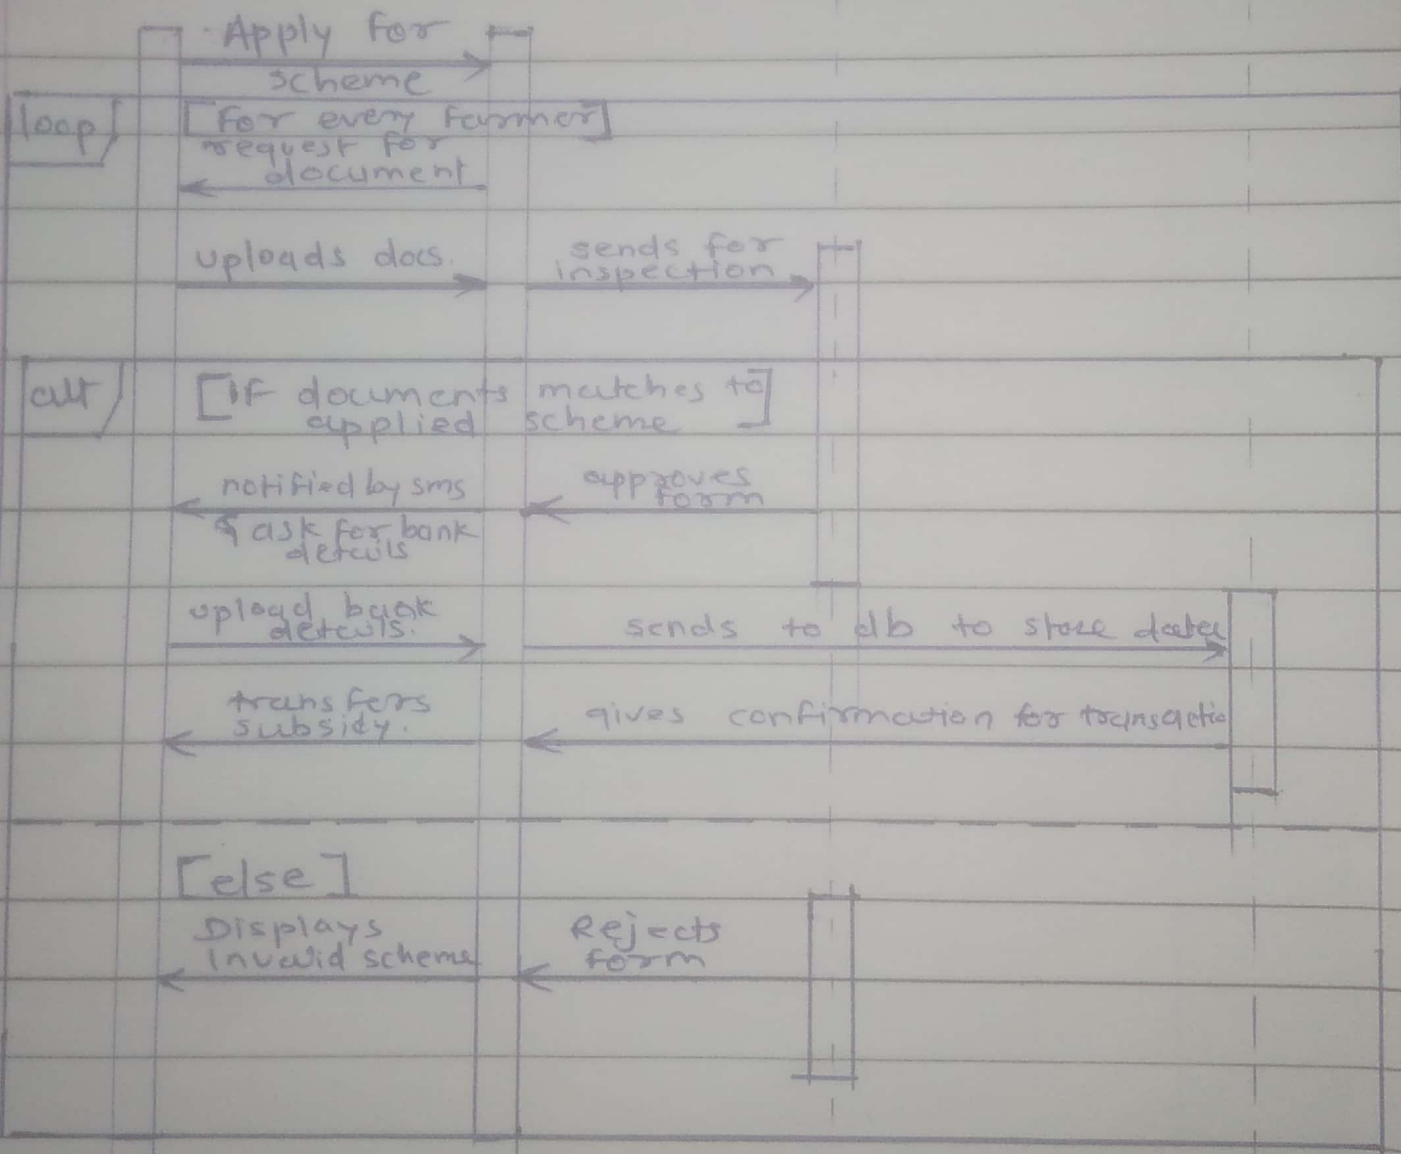 Apply for
scheme
loop
[for every farmer]
request for
document
uploads docs.
sends for
inspection
alt
[if documents matches to
applied scheme]
notified by sms
& ask for bank
details
approves
form
upload bank
details.
sends to db to store data
transfers
subsidy.
gives confirmation for transactio
[else]
Displays
Invalid scheme
Rejects
form